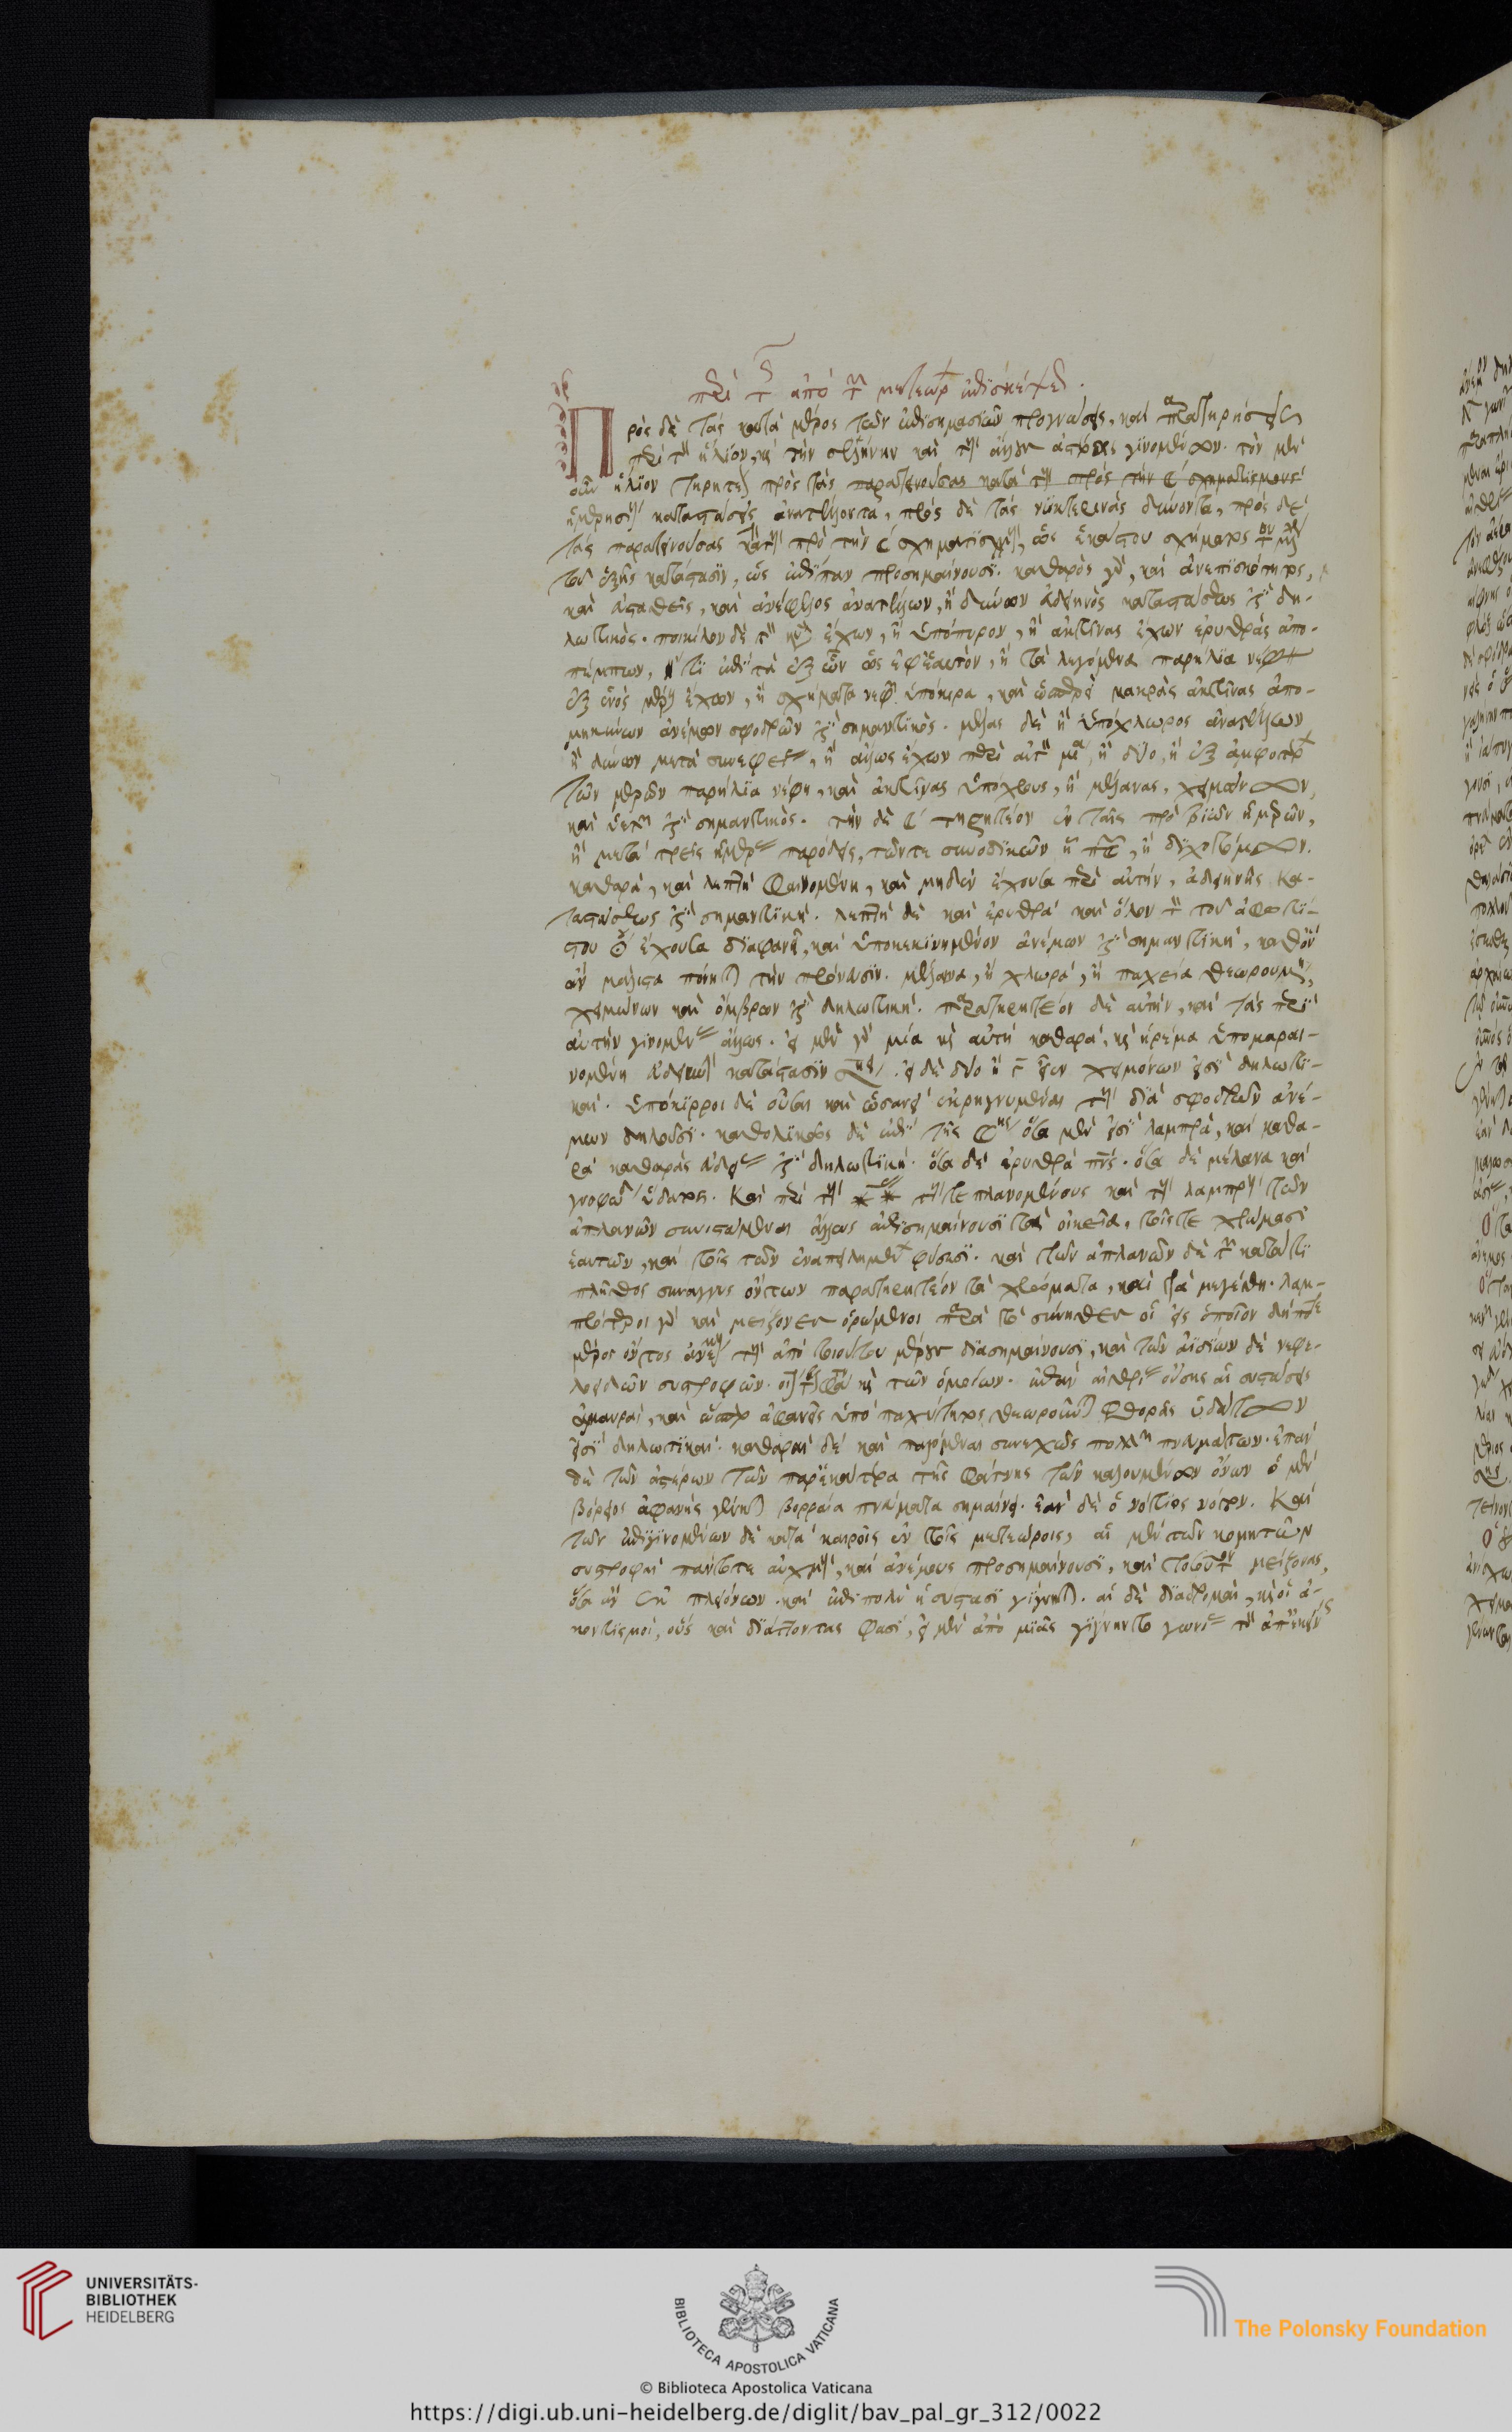 περὶ τῆς ἀπὸ τῶν μετεώρων ἐπισκέψεως.
Πρὸς δὲ τὰς κατὰ μέρος τῶν ἐπισημασιῶν προγνώσεις, καὶ παρατηρήσεις
περὶ τὸν ἥλιον, καὶ τὴν σελήνην καὶ τοὺς ἄλλους ἀστέρας γινομένων. τὸν μὲν
οὖν ἥλιον τηρητέον πρὸς τὰς παρατεινούσας κατὰ τοὺς πρὸς τὴν ☾ σχηματισμοὺς
ἡμερησίους καταστάσεις ἀνατέλλοντα, πρὸς δὲ τὰς νυκτερινὰς δύνοντα, πρὸς δὲ
τὰς παρατεινούσας κατὰ τοὺς πρὸς τὴν ☾ σχηματισμοὺς, ὡς ἑκάστου σχήματος
τοῦ ἑξῆς κατάστασιν, ὡς ἐπίπαν προσημαίνουσι. καθαρὸς γὰρ, καὶ ἀνεπισκότητος,
καὶ εὐσταθεὶς, καὶ ἀνέφελος ἀνατέλλων, ἢ δύνων εὐδεινὸς καταστάσεως ἐστὶ δη-
λωτικός. ποικίλον δὲ τὸν κύκλον ἔχων, ἢ ὑπόπυρον, ἢ ἀκτῖνας ἔχων ἐρυθρὰς ἀπο-
πέμπων, ἤτοι ἐπὶ τὰ ἔξω ὡς ἐφ' ἑαυτόν, ἢ τὰ λεγόμενα παρήλια νέφη
ἐξ ἑνὸς μέρους ἔχων, ἢ σχήματα νεφῶν ὑπόκιρα, καὶ ὥσπερ μακρὰς ἀκτῖνας ἀπο-
μηκύνων ἀνέμων σφοδρῶν ἐστὶ σημαντικός. μέλας δὲ ἢ ὑπόχλωρος ἀνατέλλων
ἢ δύνων μετὰ συνεφείας, ἢ ἅλλως ἔχων περὶ αὐτὸν μίαν, ἢ δύο, ἢ ἐξ ἀμφοτέρων
τῶν μερῶν παρήλια νέφη, καὶ ἀκτῖνας ὑπόχλους, ἢ μέλανας, χειμώνων,
καὶ ὑετῶν ἐστὶ σημαντικός. τὴν δὲ ☾ τηρητέον ἐν ταῖς πρὸ τριῶν ἡμερῶν,
ἢ μετὰ τρεῖς ἡμέρας παρόδοις, τῶν τε συνοδικῶν ἢ πανσελήνων, ἢ διχοτόμων.
καθαρὰ, καὶ λεπτὴ φαινομένη, καὶ μηδὲν ἔχουσα περὶ αὐτὴν, εὐδεινῆς κα-
ταστάσεως ἐστὶ σημαντική. λεπτὴ δὲ καὶ ἐρυθρὰ καὶ ὅλον τὸν τοῦ ἀφωτί-
στου κύκλον ἔχουσα διαφανῆ, καὶ ὑποκεκινημένον ἀνέμων ἐστὶ σημαντικὴ, καθ' ὃν
ἂν μάλιστα ποιῆται τὴν πρόνευσιν. μέλαινα, ἢ χλωρὰ, ἢ παχεῖα θεωρουμένη,
χειμώνων καὶ ὄμβρων ἐστὶ δηλωτική. παρατηρητέον δὲ αὐτὴν, καὶ τὰς περὶ
αὐτὴν γινομένας ἅλλως. εἰ μὲν γὰρ μία καὶ αὐτὴ καθαρὰ, καὶ ἠρέμα ὑπομαραι-
νομένη εὐδεινὴν κατάστασιν σημαίνει. εἰ δὲ δύο ἢ τρεῖς εἶεν χειμώνων εἰσὶ δηλωτι-
καί. ὑπόκιρροι δὲ οὖσαι καὶ ὡσανεὶ ἐκρηγνυμέναι τοὺς διὰ σφοδρῶν ἀνέ-
μων δηλοῦσι. καθολικῶς δὲ ἐπὶ τῆς ☾ ὅσα μὲν εἰσὶ λαμπρὰ, καὶ καθα-
ρὰ καθαρᾶς εὐδίας ἐστὶ δηλωτική. ὅσα δὲ ἐρυθρὰ πνεύματος. ὅσα δὲ μέλανα καὶ
γνοφώδη ὕδατος. Καὶ περὶ τοὺς ἀστέρας τούς τε πλανωμένους καὶ τοὺς λαμπροὺς τῶν
ἀπλανῶν συνιστάμεναι ἅλλως ἐπισημαίνουσι τὰ οἰκεῖα, τοῖς τε χρώμασι
ἑαυτῶν, καὶ τοῖς τῶν ἐναπειλημμένων φύσεσι. καὶ τῶν ἀπλανῶν δὲ τῶν κατά τι
πλῆθος συνάγγυς ὄντων παρατηρητέον τὰ χρώματα, καὶ τὰ μεγέθη. λαμ-
πρότεροι γὰρ καὶ μείζονες ὁρώμενοι παρὰ τὸ σύνηθες οἳ εἰς ὁποῖον δήποτε
μέρος ὄντος ἀνέμους τοὺς ἀπὸ τοιούτου μέρους διασημαίνουσι, καὶ τῶν ἀϊσίων δὲ νεφε-
λοειδῶν συστροφῶν. καὶ τῶν ὁμοίων. ἐπὰν αἰθρίας οὔσης αἱ συστάσεις
ἀμαυραὶ, καὶ ὥσπερ ἀφανεῖς ὑπὸ παχύτητος θεωροῦνται φθορᾶς ὑδάτων
εἰσὶ δηλωτικαί. καθαραὶ δὲ καὶ παλόμεναι συνεχῶς πολλῶν πνευμάτων. ἐπὰν
δὲ τῶν ἀστέρων τῶν παρ' ἑκάτερα τῆς φάτνης τῶν καλουμένων ὄνων ὁ μὲν
βόρειος ἀφανὴς γένηται βορραῖα πνεύματα σημαίνει. ἐὰν δὲ ὁ νότιος νότον. Καὶ
τῶν ἐπιγινομένων δὲ κατὰ καιροὺς ἐν τοῖς μετεώροις, αἱ μὲν τῶν κομητῶν
συστροφαὶ πάντοτε αὐχμοὺς, καὶ ἀνέμους προσημαίνουσι, καὶ τοσοῦτον μείζονας,
ὅσα ἂν ἐκ πλειόνων. καὶ ἐπιπολὺ ἡ σύστασι γίγνηται. αἱ δὲ διαδρομαὶ, καὶ οἱ ἀ-
κοντισμοὶ, οὓς καὶ διάττοντας φασὶ, εἰ μὲν ἀπὸ μιᾶς γίγνηντο γωνίας τὸν ἀπ' ἐκείνης
UNIVERSITÄTS-
BIBLIOTHEK
HEIDELBERG
BIBLIOTECA APOSTOLICA VATICANA
The Polonsky Foundation
© Biblioteca Apostolica Vaticana
https://digi.ub.uni-heidelberg.de/diglit/bav_pal_gr_312/0022